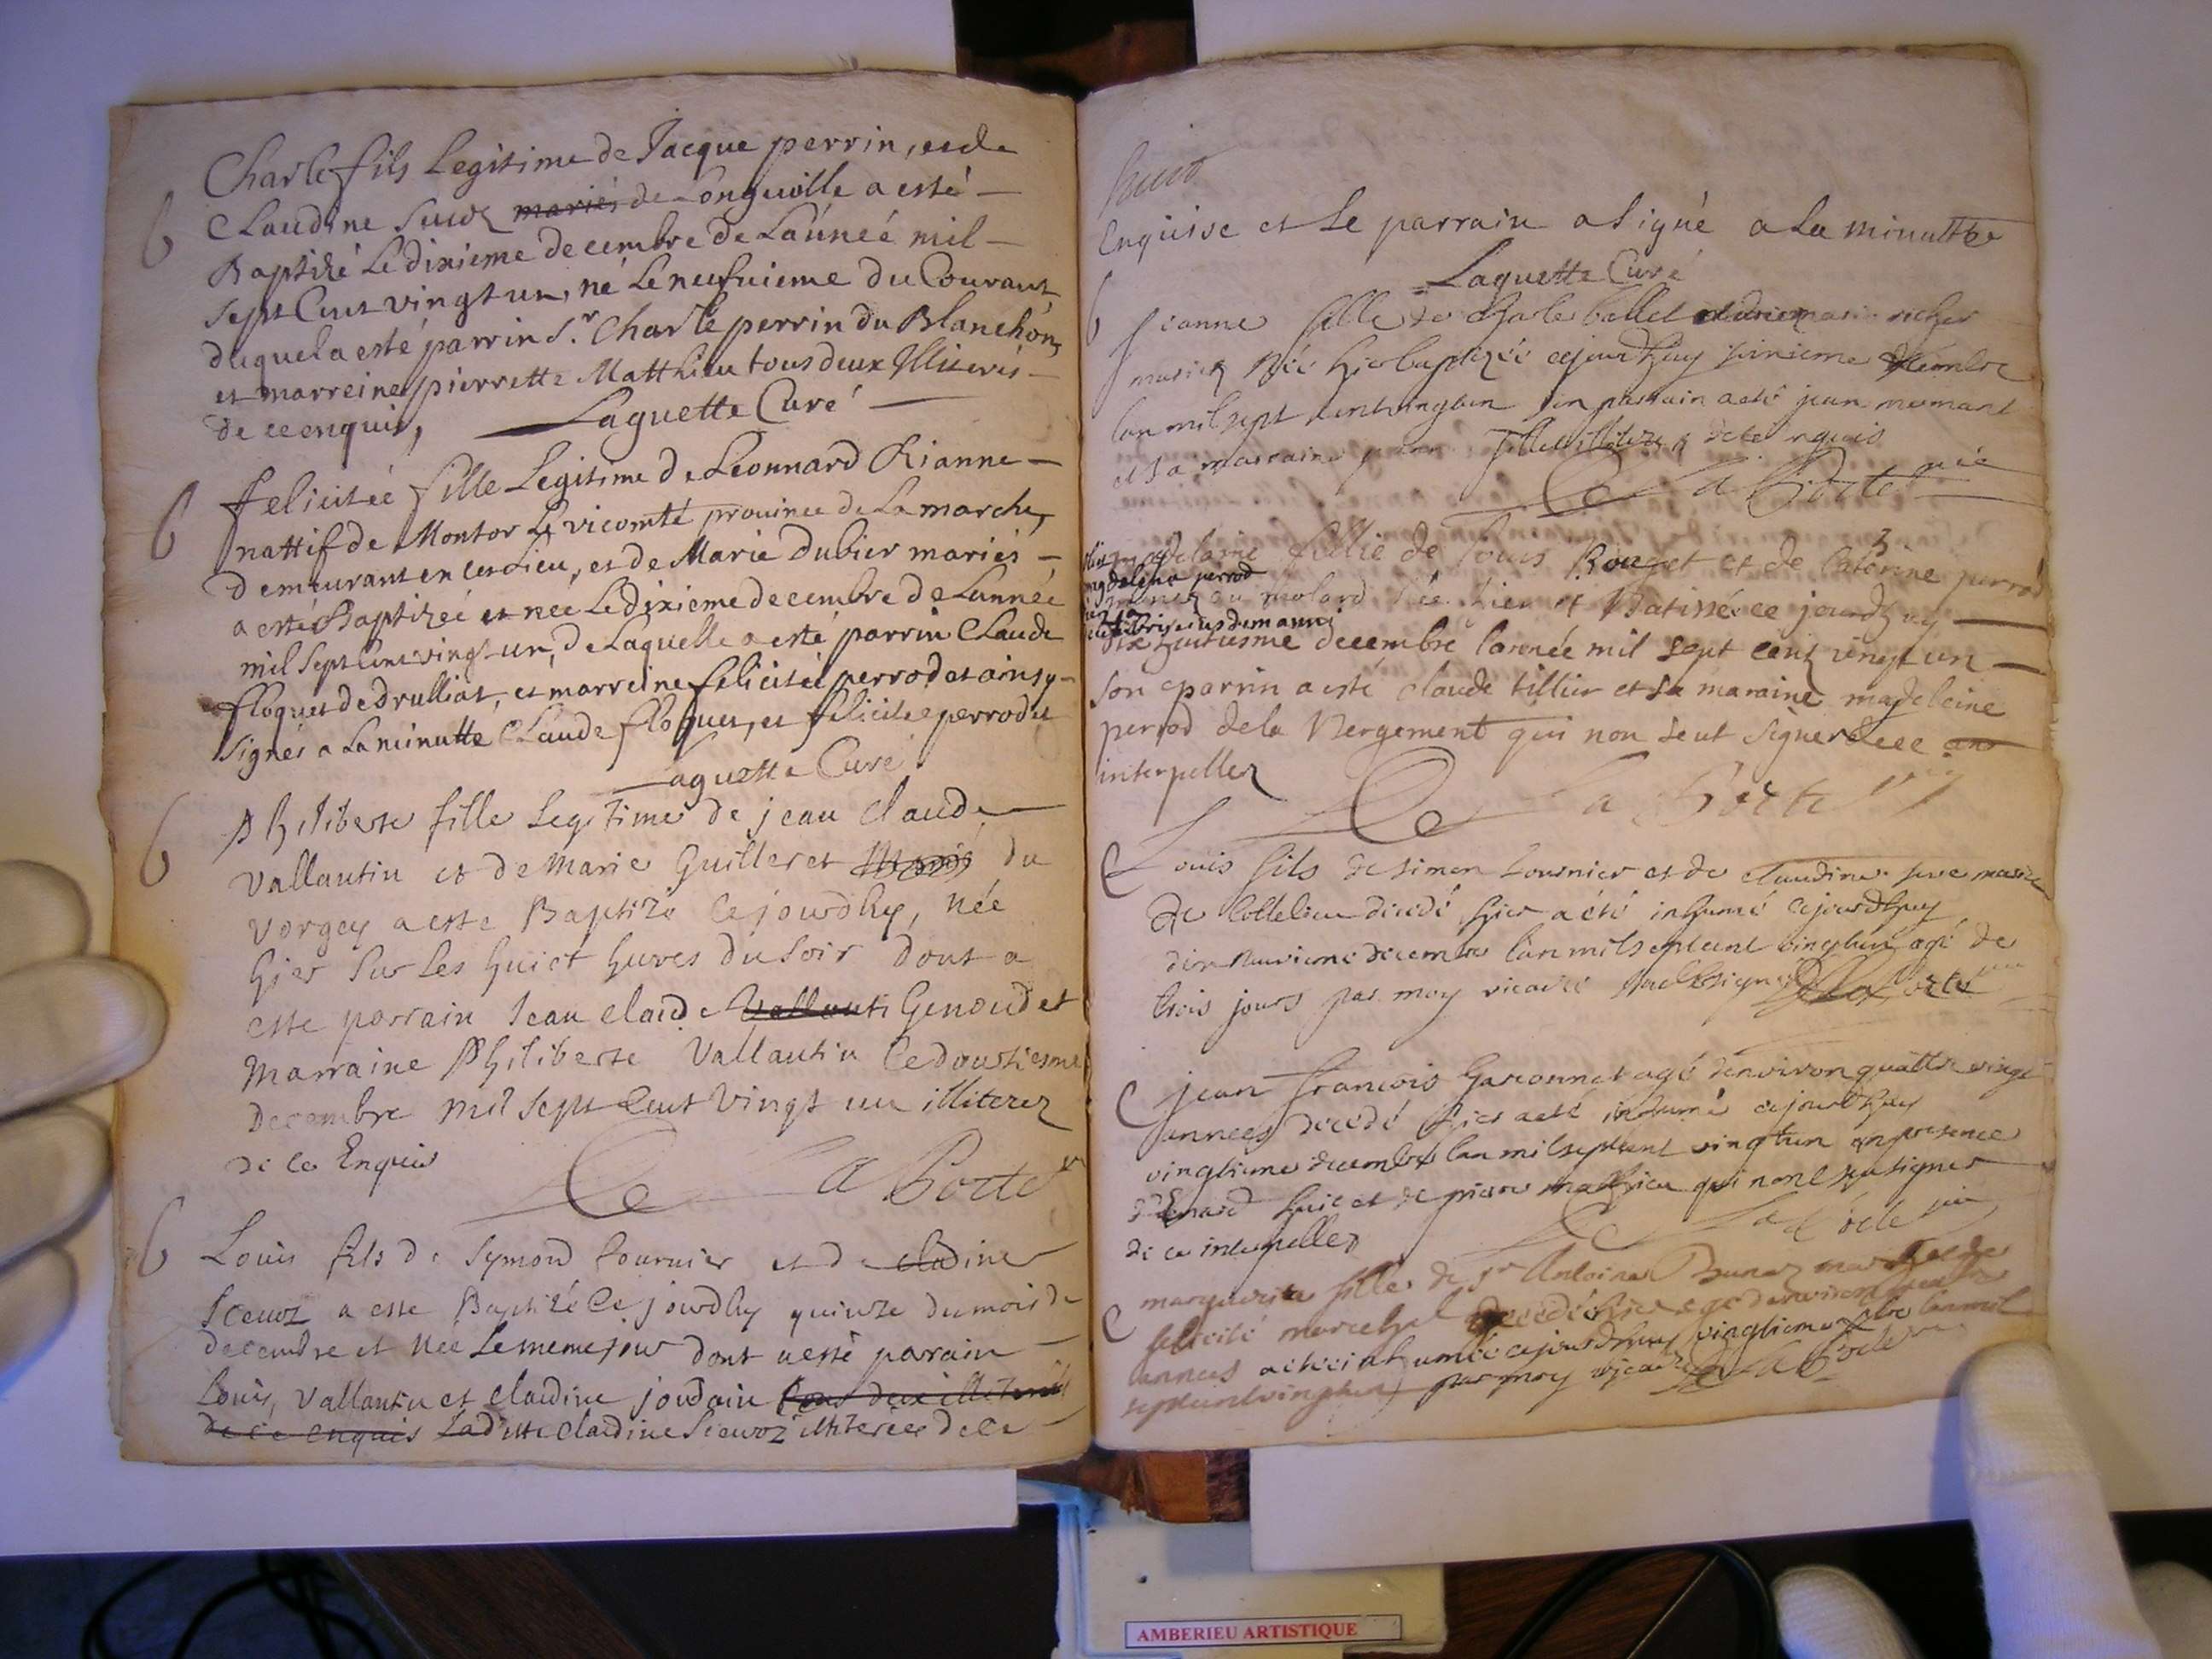 Charle fils Legitime de Jacque perrin, et de
Claudine Suoz mariés de Longuille a esté
Baptizé Le dixieme decembre de L'année mil
sept Cent vingt un, né Le neufuieme du Courant
duquel a esté parrin Sr. Charle perrin du Blanchon,
et marreine pierrette Matthieu tous deux Illiterés
de ce enquis, Laguette Curé
felicitée fille Legitime de Leonnard Rianne
nattif de Montor Le vicomté prouince de La marche,
demeurant en ces Lieu, et de Marie Dubier mariés
a esté Baptizeé et neé Le dixieme decembre de L'année
mil sept Cent vingt un, de Laquelle a esté parrin Claude
floquet de drulliat, et marreine felicitée perrodet ainsy
signés a La minutte Claude floquet, et felicitee perrodet
Laguette Curé
Philiberte fille Legitime de jean Claude
Vallantin et de Marie Guilleret du
Vorgey a este Baptizé Ce jourdhy, née
hier Sur Les huict hures du Soir dont a
este parrain Jean Claude Vallanti Genoud et
Marraine Philiberte Vallantin Ce doustiesme
Decembre mil Sept Cent Vingt un illiterez
de Ce Enquis
De La Porte
Louis fils de Symond fournier et de Cladine
Scauoz a este Baptizé Ce jourdhy quinze du mois de
decembre et née Le meme jour dont a esté parain
Louis, Vallantin et Claudine joudain tous deux illiterés
de Ce enquis Laditte Claudine Sceuoz illiterée de Ce
Enquise et Le parrain a signé a La minutte
Laguette Curé
Jeanne fille de Charle ballet
mariez Née hier baptizée cejourdhuy decembre
lan mil sept cent vingt un son parrain a eté jean
et sa marraine de ce enquis
De La Porte
magdelaine fillie de Louis Rouget et de Caterine perrod
magdelena perrod
mariez du molard Née hier et Batissée ce jourdhuy
eiusdem anni
dix huitiesme decembre l'année mil sept cent vingt un
son parrin a esté claude tillier et sa maraine madeleine
perrod de la Vergement qui non seut signer de ce
interpellez
De La Porte
Louis fils de simon fournier et de claudine mariez
de decedé hier a été inhumé cejourdhuy
dix neuvieme decembre l'an mil sept cent vingt un agé de
trois jours par moy vicaire soubsigné De La Porte
jean francois Gasconnet agé d'environ quattre vingt
annees decedé hier a eté inhumé cejourdhuy
vingtieme decembre lan mil sept cent vingt un en presence
de huic et de pierre matthieu qui nont sceu signer
de ce interpellez De La Porte
marguerite fille de Sr Antoine
felicité marechal decedée hier agé denviron
annees a eté inhumée cejourdhuy vingtieme lan mil
sept cent vingt un par moy vicaire De La Porte
AMBERIEU ARTISTIQUE